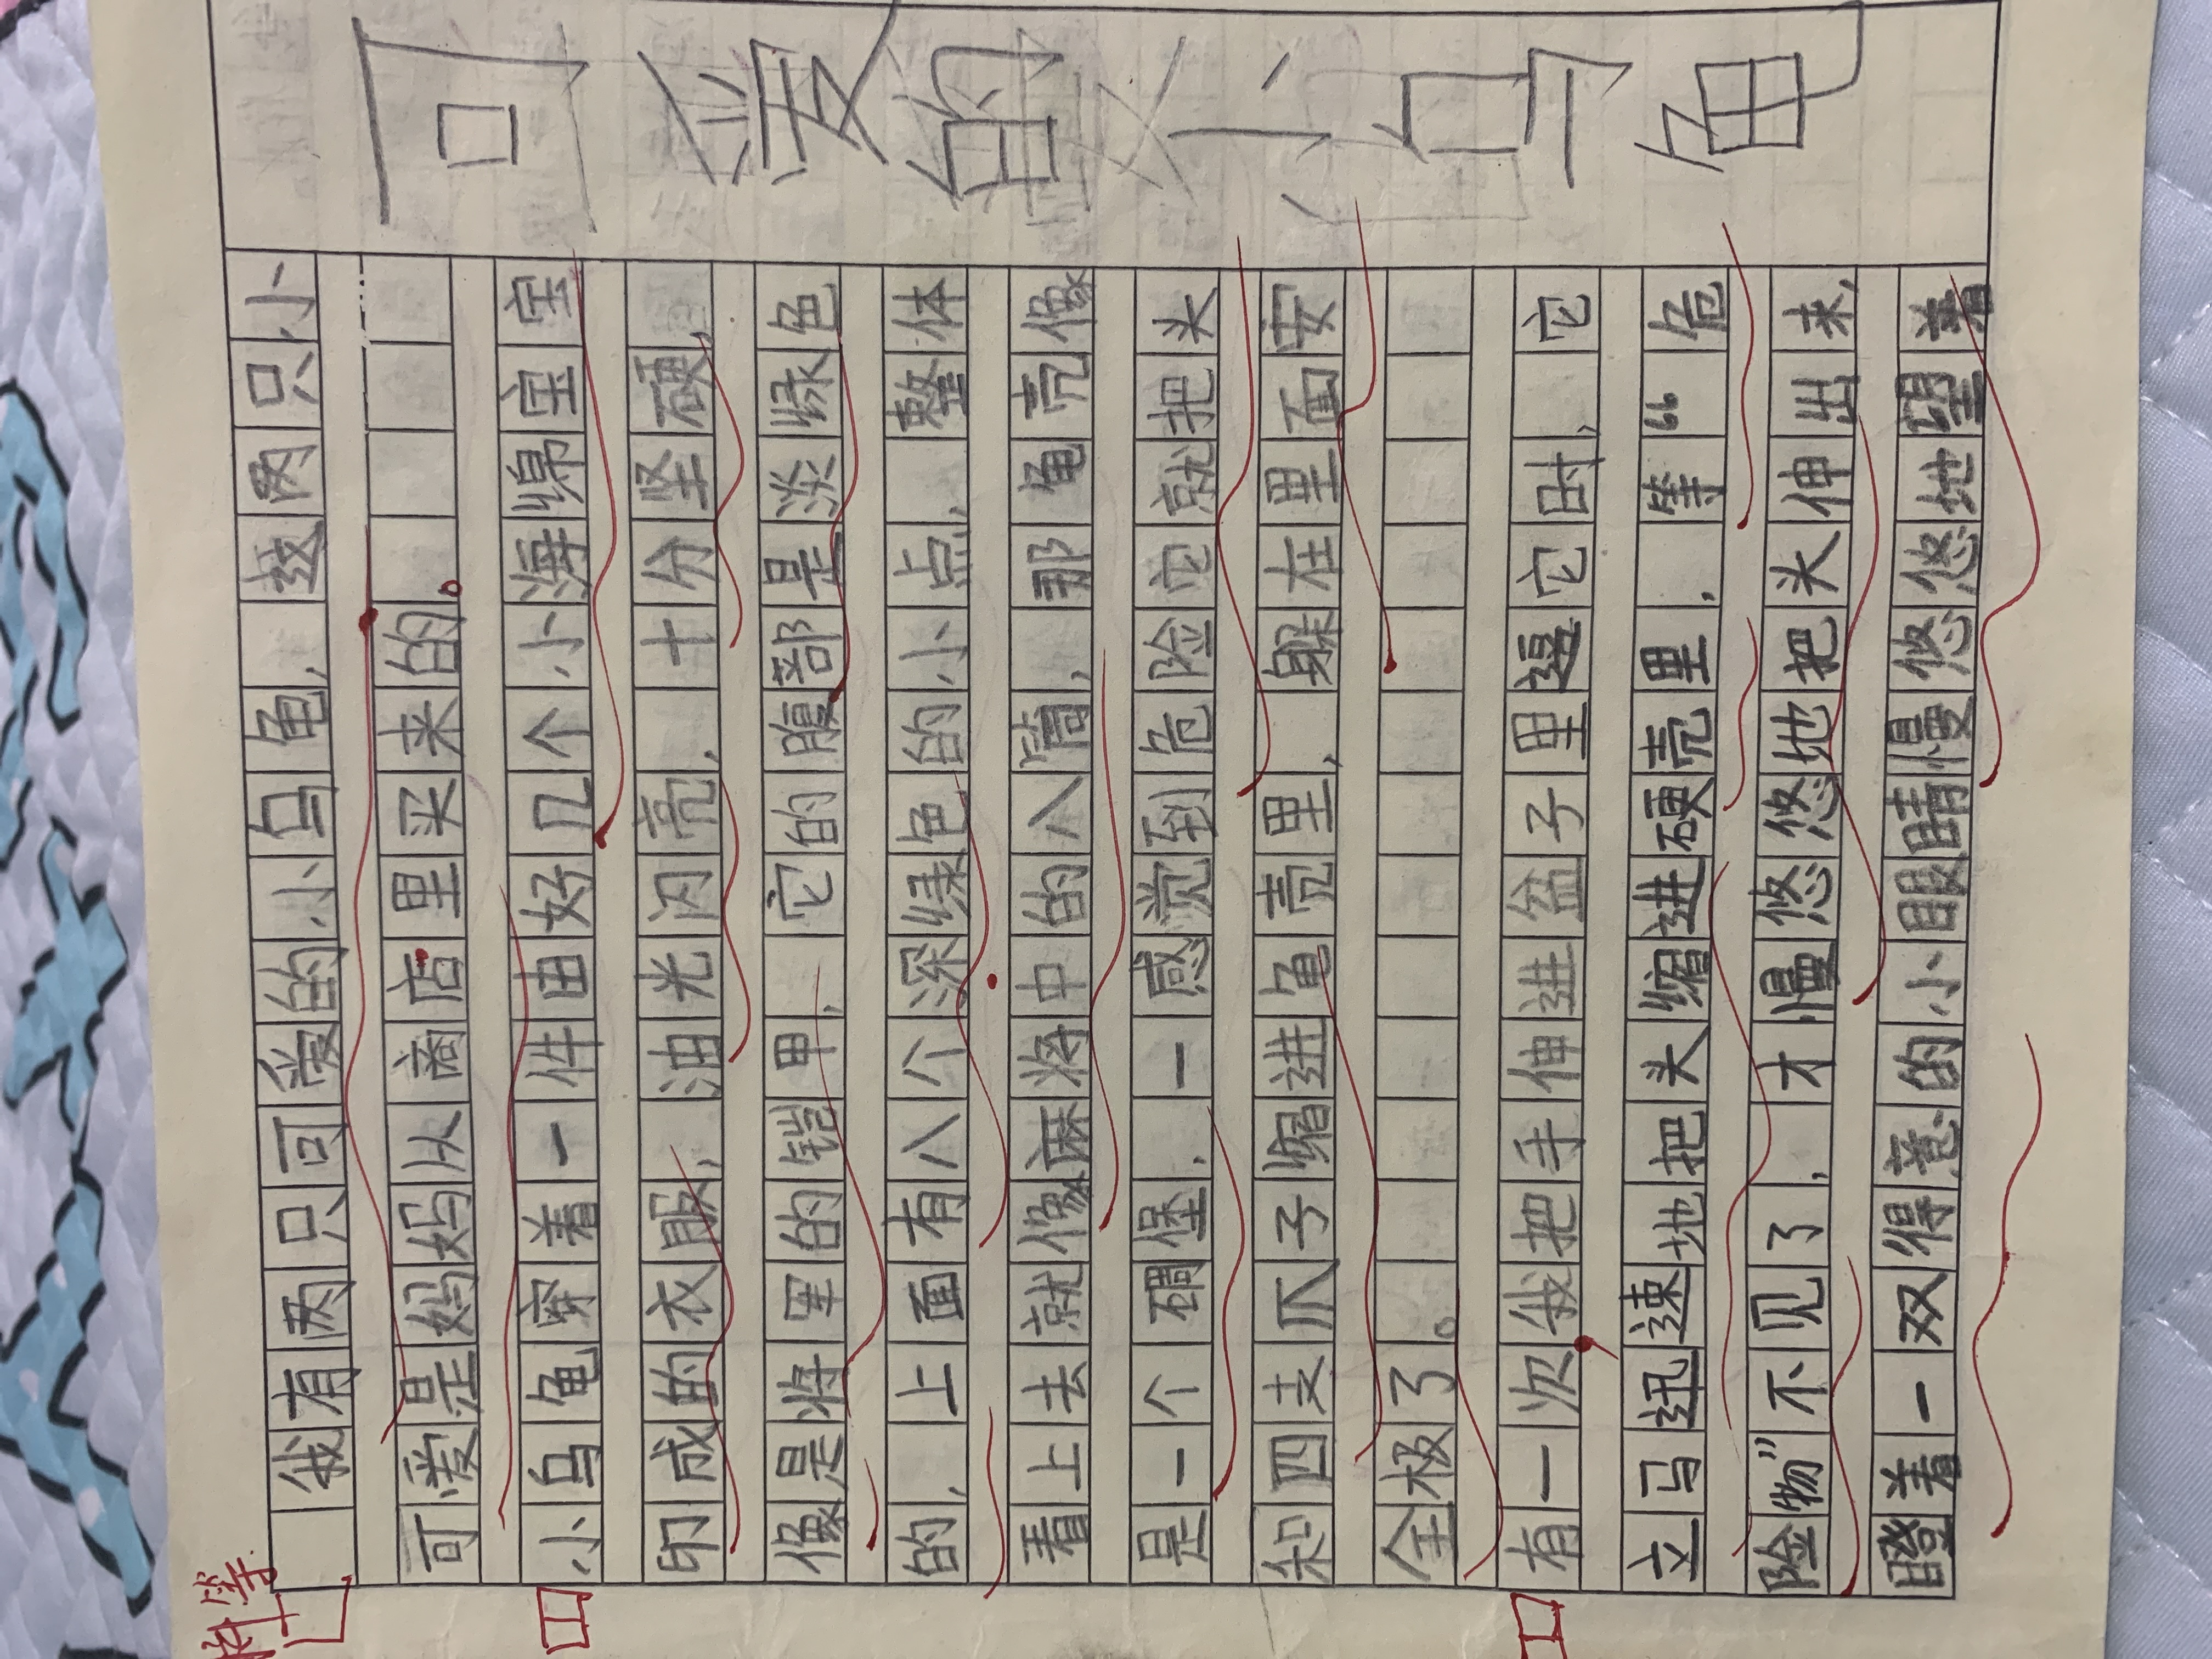 可爱的小乌龟
我有两只可爱的小乌龟，这两只小
可爱是妈妈从商店里买来的。
小乌龟穿着一件由好几个小海绵宝宝
印成的衣服，油光闪亮，十分坚硬，
像是将军的铠甲，它的腹部是淡绿色
的，上面有八个深绿色的小点，整体
看上去就像麻将中的八筒，那龟壳像
是一个碉堡，一感觉到危险它就把头
和四支爪子缩进龟壳里，躲在里面安
全极了。
有一次我把手伸进盆子里逗它时，它
立马迅速地把头缩进硬壳里，等“危
险物”不见了，才慢悠悠地把头伸出来，
瞪着一双得意的小眼睛慢悠悠地望着